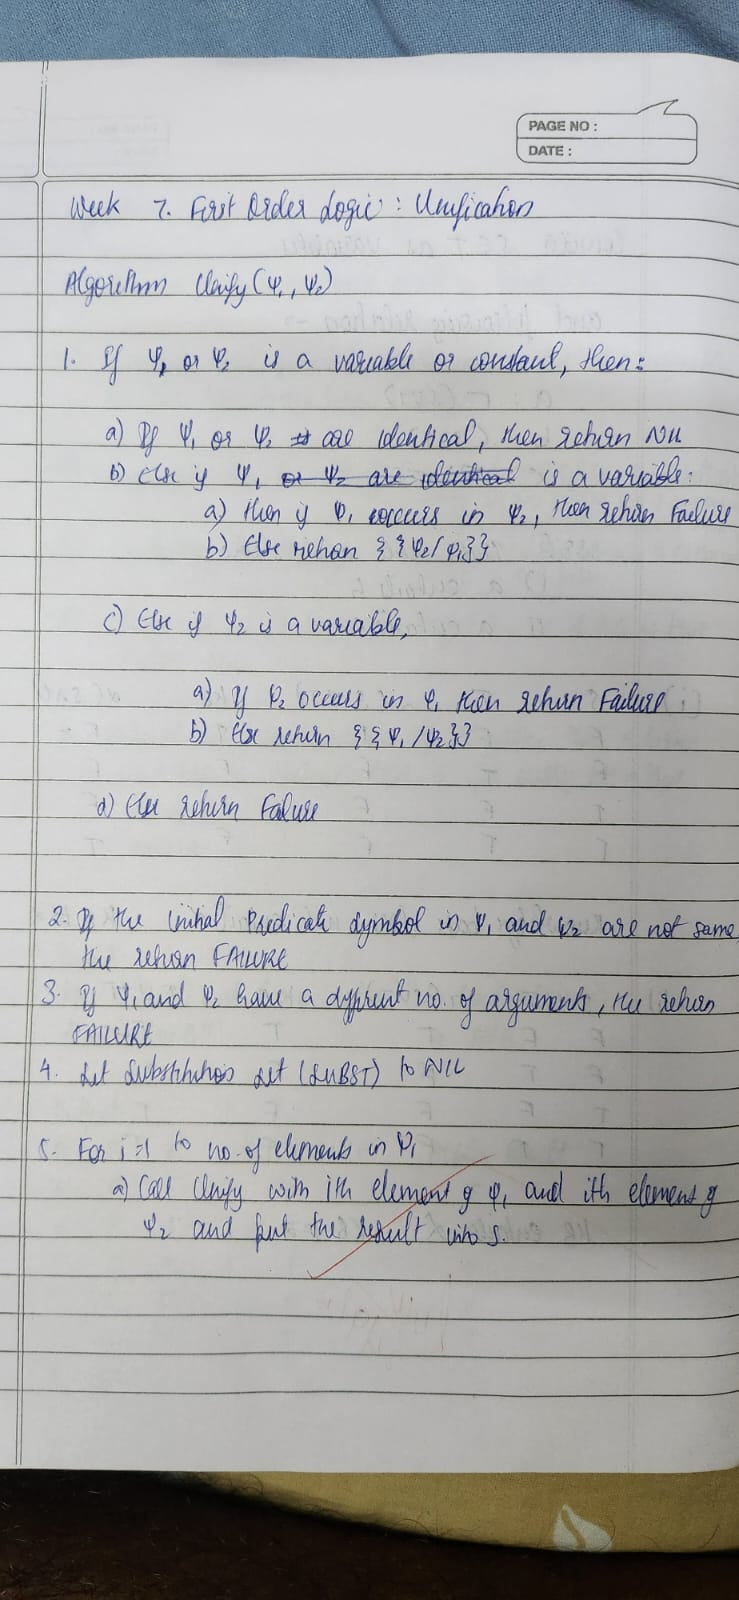 PAGE NO :
DATE :
Week 7. First Order Logic : Unification
Algorithm Unify (Ψ1, Ψ2)
1. If Ψ1 or Ψ2 is a variable or constant, then:
a) If Ψ1 or Ψ2 are identical, then return Nil
b) Else if Ψ1 or Ψ2 are identical is a variable:
a) then if Ψ1 occurs in Ψ2, then return Failure
b) Else return { {Ψ2/Ψ1}}
c) Else if Ψ2 is a variable,
a) If Ψ2 occurs in Ψ1 then return Failure
b) Else return { {Ψ1/Ψ2}}
d) Else return Failure
2. If the initial Predicate symbol in Ψ1 and Ψ2 are not same
the return FAILURE
3. If Ψ1 and Ψ2 have a different no. of arguments, the return
FAILURE
4. Set Substitution set (SUBST) to NIL
5. For i=1 to no. of elements in Ψ1
a) Call Unify with ith element of Ψ1 and ith element of
Ψ2 and put the result into S.